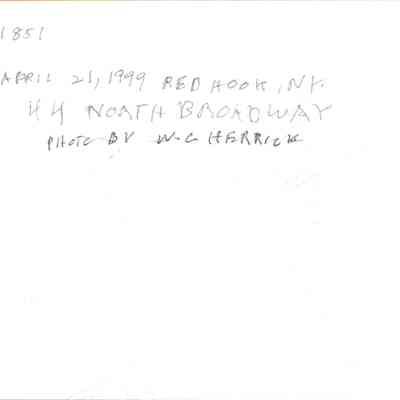 1851
APRIL 21, 1999 RED HOOK, NY.
44 NORTH BROADWAY
PHOTO BY W.C HERRICK